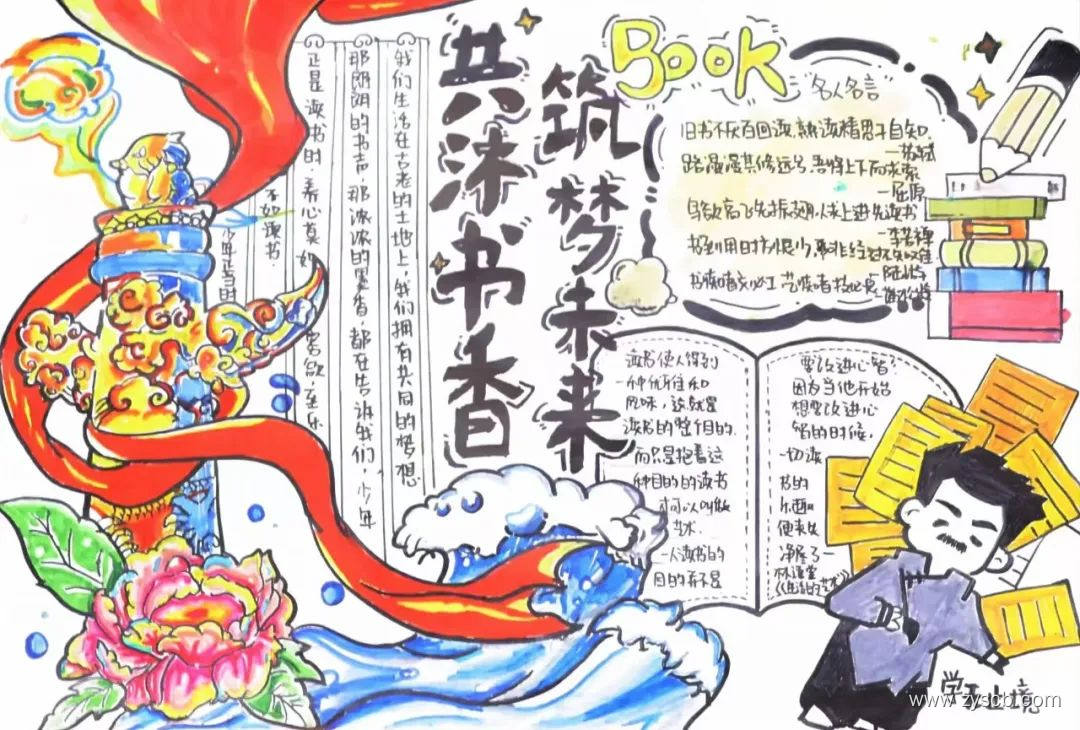 共沐书香
筑梦未来
BOOK
"名人名言"
旧书不厌百回读,熟读精思子自知.
—苏轼
路漫漫其修远兮,吾将上下而求索
—屈原
鸟欲高飞先振翅,人求上进先读书
—李苦禅
书到用时方恨少,事非经过不知难
—陆游
我们生活在古老的土地上,我们拥有共同的梦想
那朗朗的书声,那浓浓的墨香,都在告诉我们,少年
正是读书时.养心莫如 寡欲,至乐
不如读书.
少年正当时
读书使人得到
一种优雅和
风味,这就是
读书的整个目的.
而只是抱着这
种目的的读书
才可以叫做
艺术.
一人读书的
目的并不是
要改进心智
因为当他开始
想要改进心
智的时候,
一切读
书的
乐趣
便丧失
净尽了—
林语堂
《生活的艺术》
学无止境
www.zyscb.com